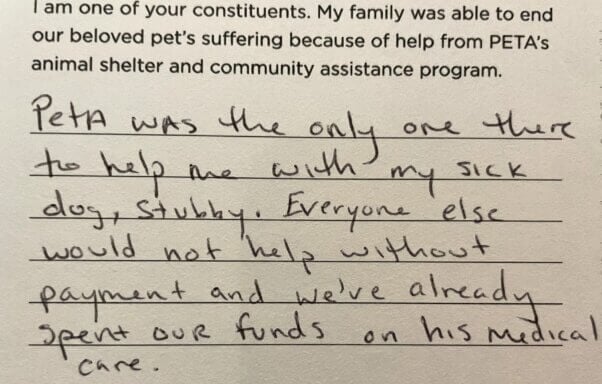 I am one of your constituents. My family was able to end
our beloved pet's suffering because of help from PETA's
animal shelter and community assistance program.
PetA was the only one there
to help me with my sick
dog, Stubby. Everyone else
would not help without
payment and we've already
spent our funds on his medical
care.